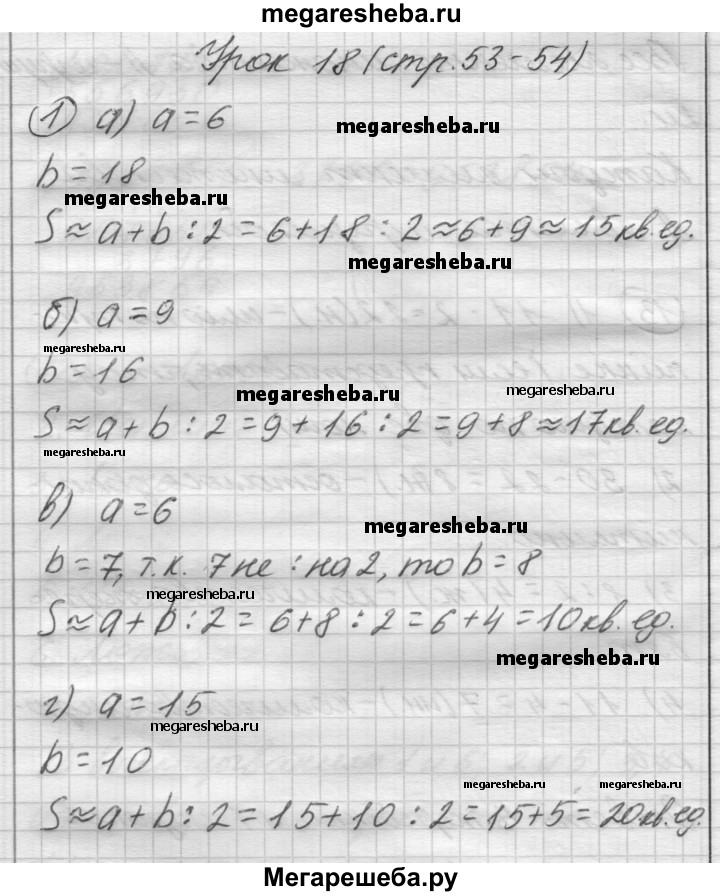 megaresheba.ru
Урок 18 (стр. 53-54)
① а) a = 6
megaresheba.ru
b = 18
megaresheba.ru
S ≈ a + b : 2 = 6 + 18 : 2 ≈ 6 + 9 ≈ 15 кв. ед.
megaresheba.ru
б) a = 9
megaresheba.ru
b = 16
megaresheba.ru
megaresheba.ru
S ≈ a + b : 2 = 9 + 16 : 2 = 9 + 8 ≈ 17 кв. ед.
megaresheba.ru
в) a = 6
megaresheba.ru
b = 7, т.к. 7 не : на 2, то b = 8
megaresheba.ru
S ≈ a + b : 2 = 6 + 8 : 2 = 6 + 4 = 10 кв. ед.
megaresheba.ru
г) a = 15
megaresheba.ru
b = 10
megaresheba.ru
megaresheba.ru
S ≈ a + b : 2 = 15 + 10 : 2 = 15 + 5 = 20 кв. ед.
Мегарешеба.ру